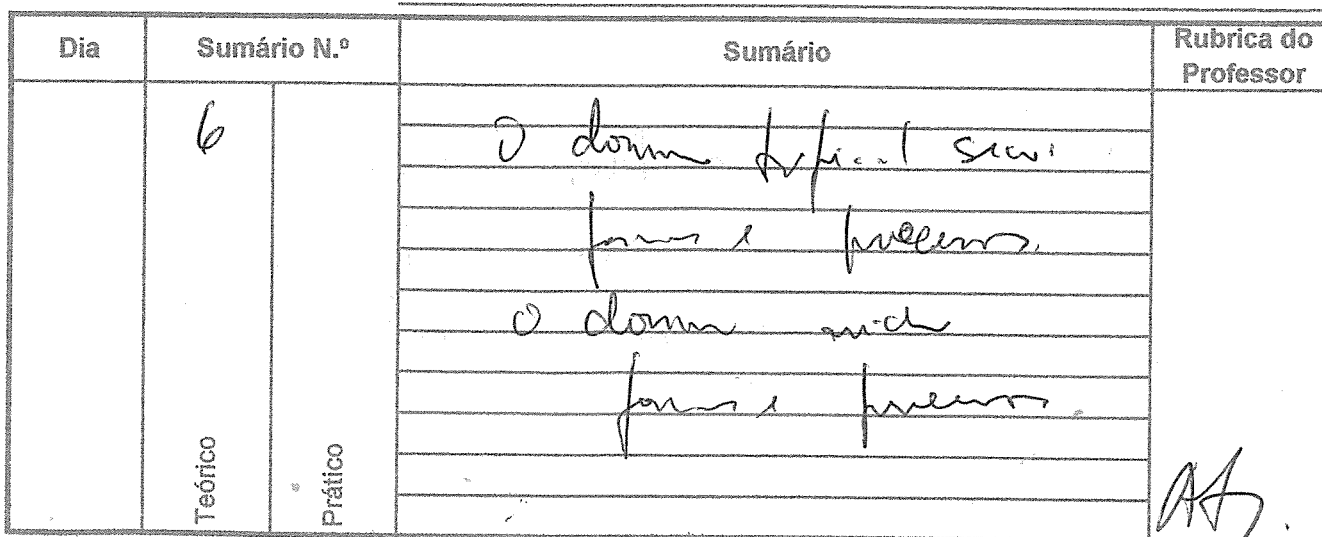 Dia Sumário N.º Sumário Rubrica do Professor
6
O domínio tropical seco:
formas e processos.
O domínio árido
formas e processos.
Teórico Prático